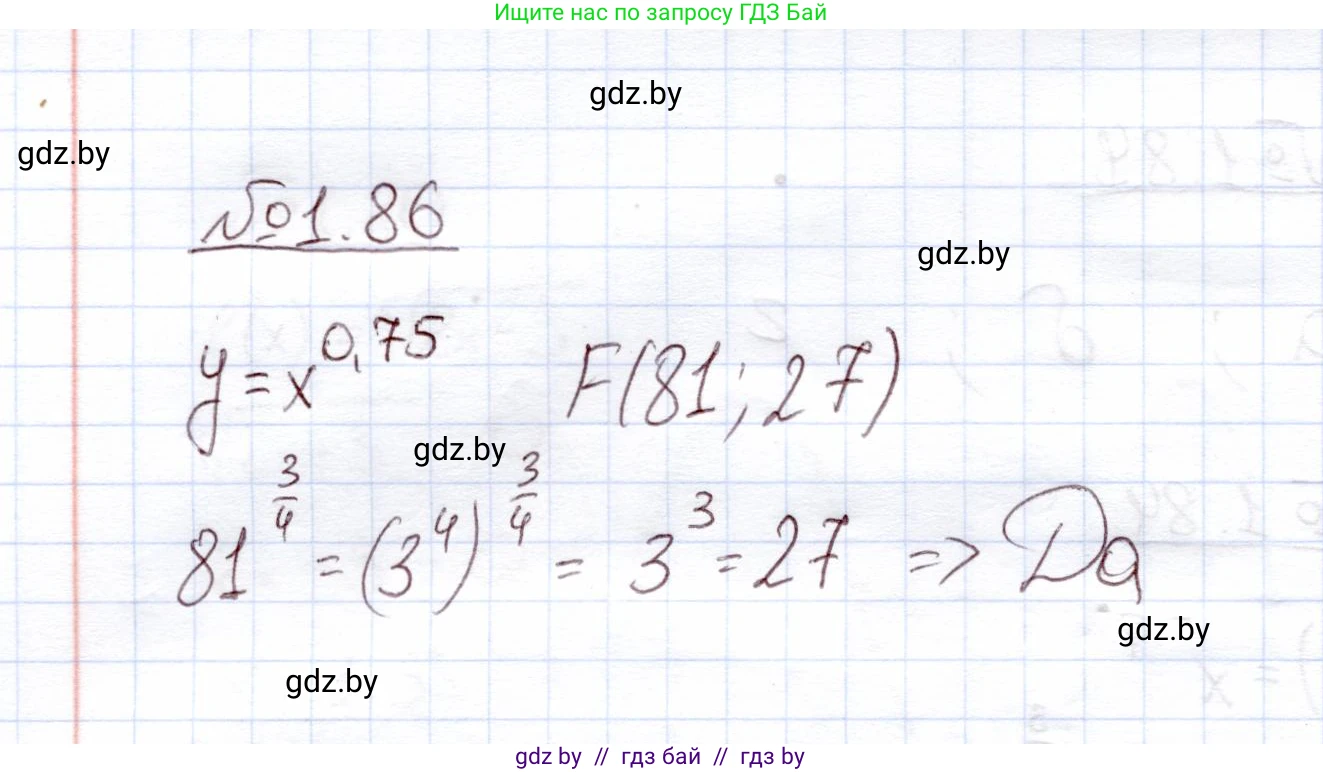 Ищите нас по запросу ГДЗ Бай
gdz.by
gdz.by
№1.86
gdz.by
y = x^{0,75} F(81; 27)
gdz.by
81^{\frac{3}{4}} = (3^4)^{\frac{3}{4}} = 3^3 = 27 => Да
gdz.by
gdz.by
gdz by // гдз бай // gdz by